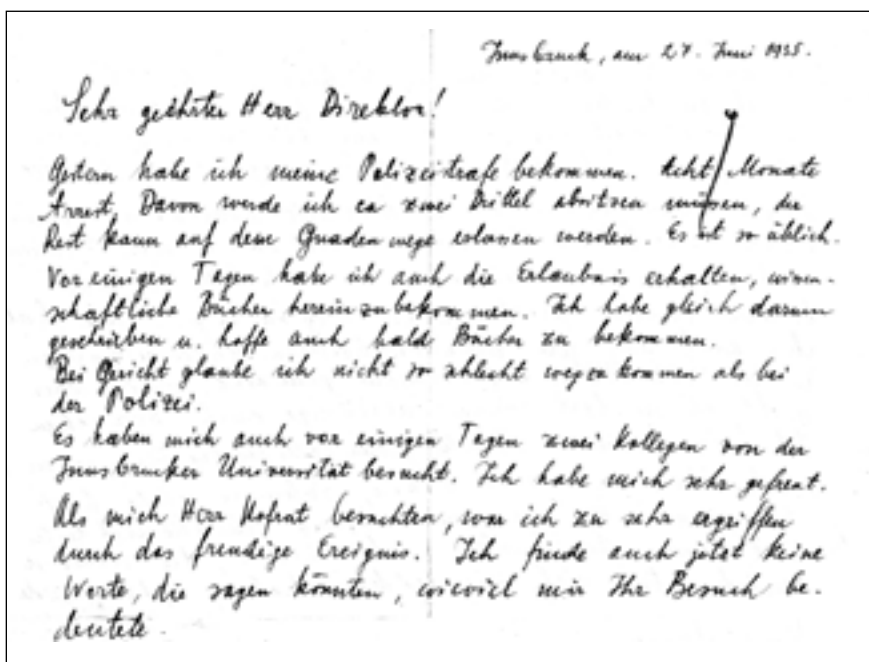 Innsbruck, am 27. Juni 1935.
Sehr geehrter Herr Direktor!
Gestern habe ich meine Polizeistrafe bekommen. Acht Monate
Arrest. Davon werde ich ca zwei Drittel absitzen müssen, der
Rest kann auf dem Gnadenwege erlassen werden. Es ist so üblich.
Vor einigen Tagen habe ich auch die Erlaubnis erhalten, wissen-
schaftliche Bücher hereinzubekommen. Ich habe gleich darum
geschrieben u. hoffe auch bald Bücher zu bekommen.
Bei Gericht glaube ich nicht so schlecht wegzukommen als bei
der Polizei.
Es haben mich auch vor einigen Tagen zwei Kollegen von der
Innsbrucker Universität besucht. Ich habe mich sehr gefreut.
Als mich Herr Hofrat besuchten, war ich zu sehr ergriffen
durch das freudige Ereignis. Ich finde auch jetzt keine
Worte, die sagen könnten, wieviel mir Ihr Besuch be-
deutete.